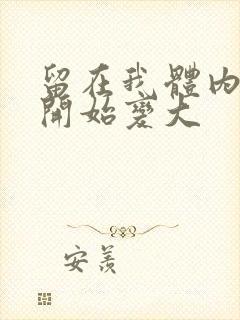 留在我體内
開始變大
安羨